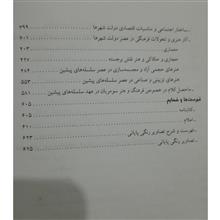 ساختار اجتماعی و مناسبات اقتصادی دولت شهرها ۳۹۹
آثار هنری و تحولات فرهنگی در عصر دولت شهرها ۴۰۱
معماری ۴۰۳
معماری و حکاکی و هنر نقش برجسته ۴۲۷
هنرهای تجسمی آزاد و مجسمه‌سازی در عصر سلسله‌های پیشین ۴۸۱
هنرهای تزیینی و صناعی در عصر سلسله‌های پیشین ۵۵۳
ماحصل کلام در خصوص فرهنگ و هنر سومریان در عهد سلسله‌های پیشین ۵۸۱
فهرست‌ها و ضمایم ۶۰۵
کتابنامه ۶۰۵
اعلام ۶۱۳
فهرست و شرح تصاویر رنگی پایانی ۶۲۳
تصاویر رنگی پایانی ۶۲۵